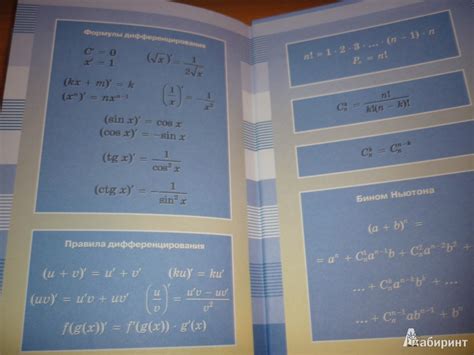 Формулы дифференцирования
C' = 0
x' = 1
(√x)' = 1/(2√x)
(kx + m)' = k
(xⁿ)' = nxⁿ⁻¹
(1/x)' = -1/x²
(sin x)' = cos x
(cos x)' = -sin x
(tg x)' = 1/cos² x
(ctg x)' = -1/sin² x
Правила дифференцирования
(u + v)' = u' + v' (ku)' = ku'
(uv)' = u'v + uv' (u/v)' = (u'v - uv')/v²
f(g(x))' = f'(g(x)) · g'(x)
n! = 1 · 2 · 3 · ... · (n - 1) · n
Pₙ = n!
Cₙᵏ = n!/(k!(n - k)!)
Cₙᵏ = Cₙⁿ⁻ᵏ
Бином Ньютона
(a + b)ⁿ =
= aⁿ + Cₙ¹aⁿ⁻¹b + Cₙ²aⁿ⁻²b² +
... + Cₙᵏaⁿ⁻ᵏbᵏ + ...
... + Cₙⁿ⁻¹abⁿ⁻¹ + bⁿ
Лабиринт